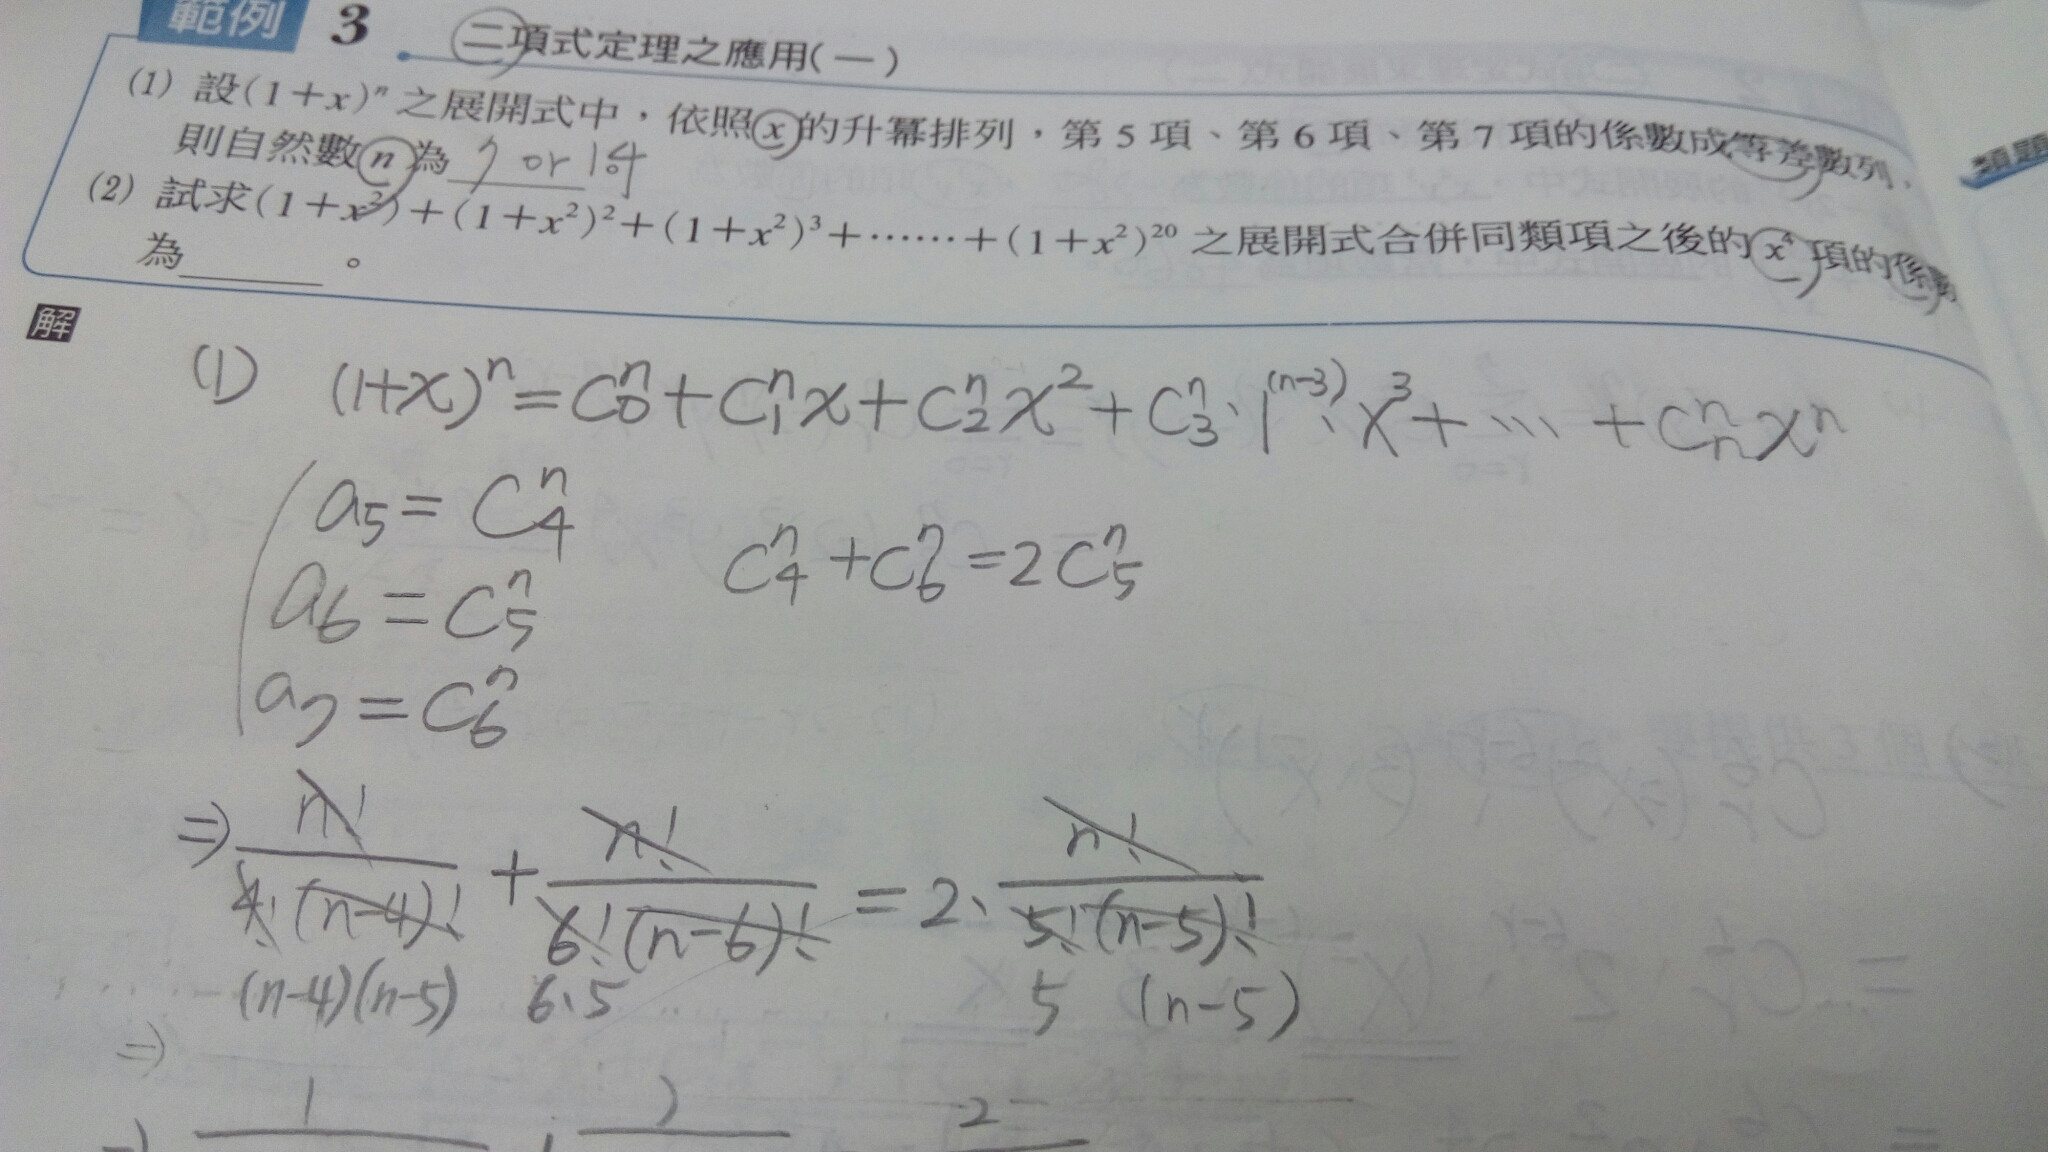 範例 3 二項式定理之應用(一)
(1) 設(1+x)ⁿ之展開式中，依照x的升冪排列，第5項、第6項、第7項的係數成等差數列，
則自然數n為 7 or 14
(2) 試求(1+x²)+(1+x²)²+(1+x²)³+……+(1+x²)²⁰之展開式合併同類項之後的x⁴項的係數
為______。
類題
解
(1) (1+x)ⁿ=C₀ⁿ+C₁ⁿx+C₂ⁿx²+C₃ⁿ·1⁽ⁿ⁻³⁾·x³+…+Cₙⁿxⁿ
a₅=C₄ⁿ
a₆=C₅ⁿ
a₇=C₆ⁿ
C₄ⁿ+C₆ⁿ=2C₅ⁿ
⇒ n!/4!(n-4)! + n!/6!(n-6)! = 2·n!/5!(n-5)!
(n-4)(n-5) 6·5 5 (n-5)
⇒
1 2